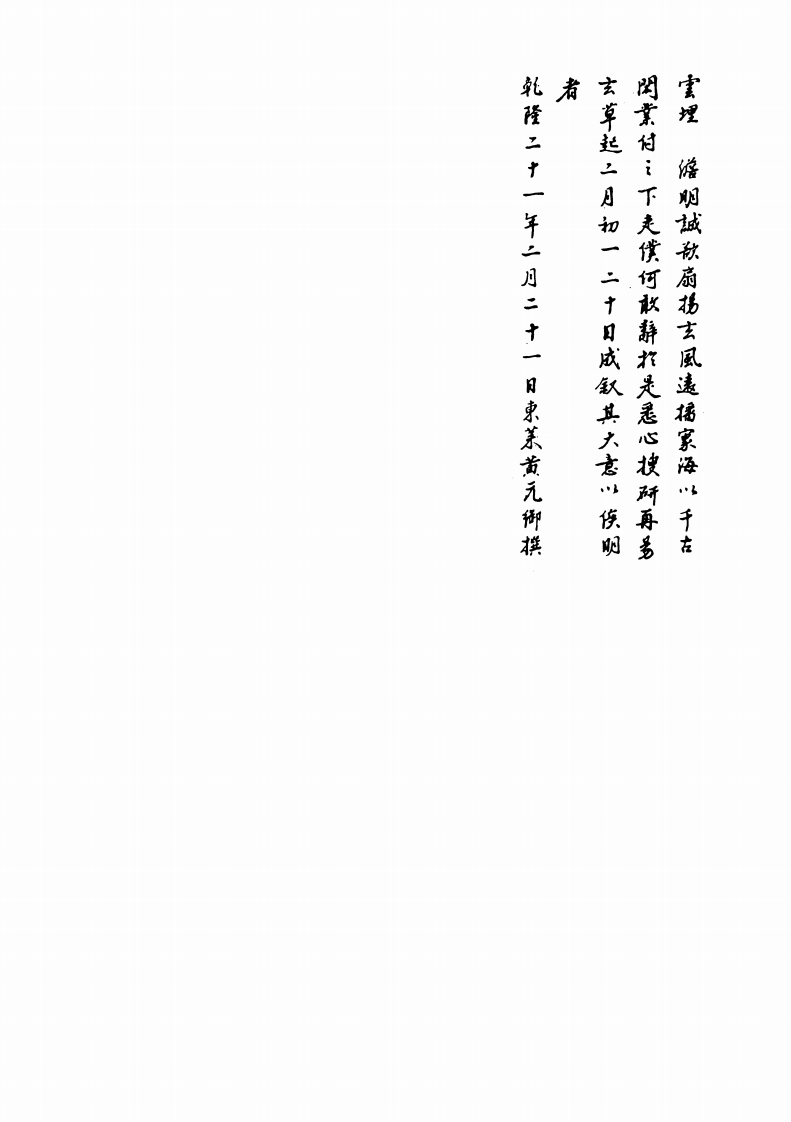 雲埋 澹明誠欲扇揚玄風遠播寰海以千古
閟業付之下走僕何敢辭於是悉心搜研再易
玄草起二月初一二十日成叙其大意以俟明
者
乾隆二十一年二月二十一日東萊黄元御撰